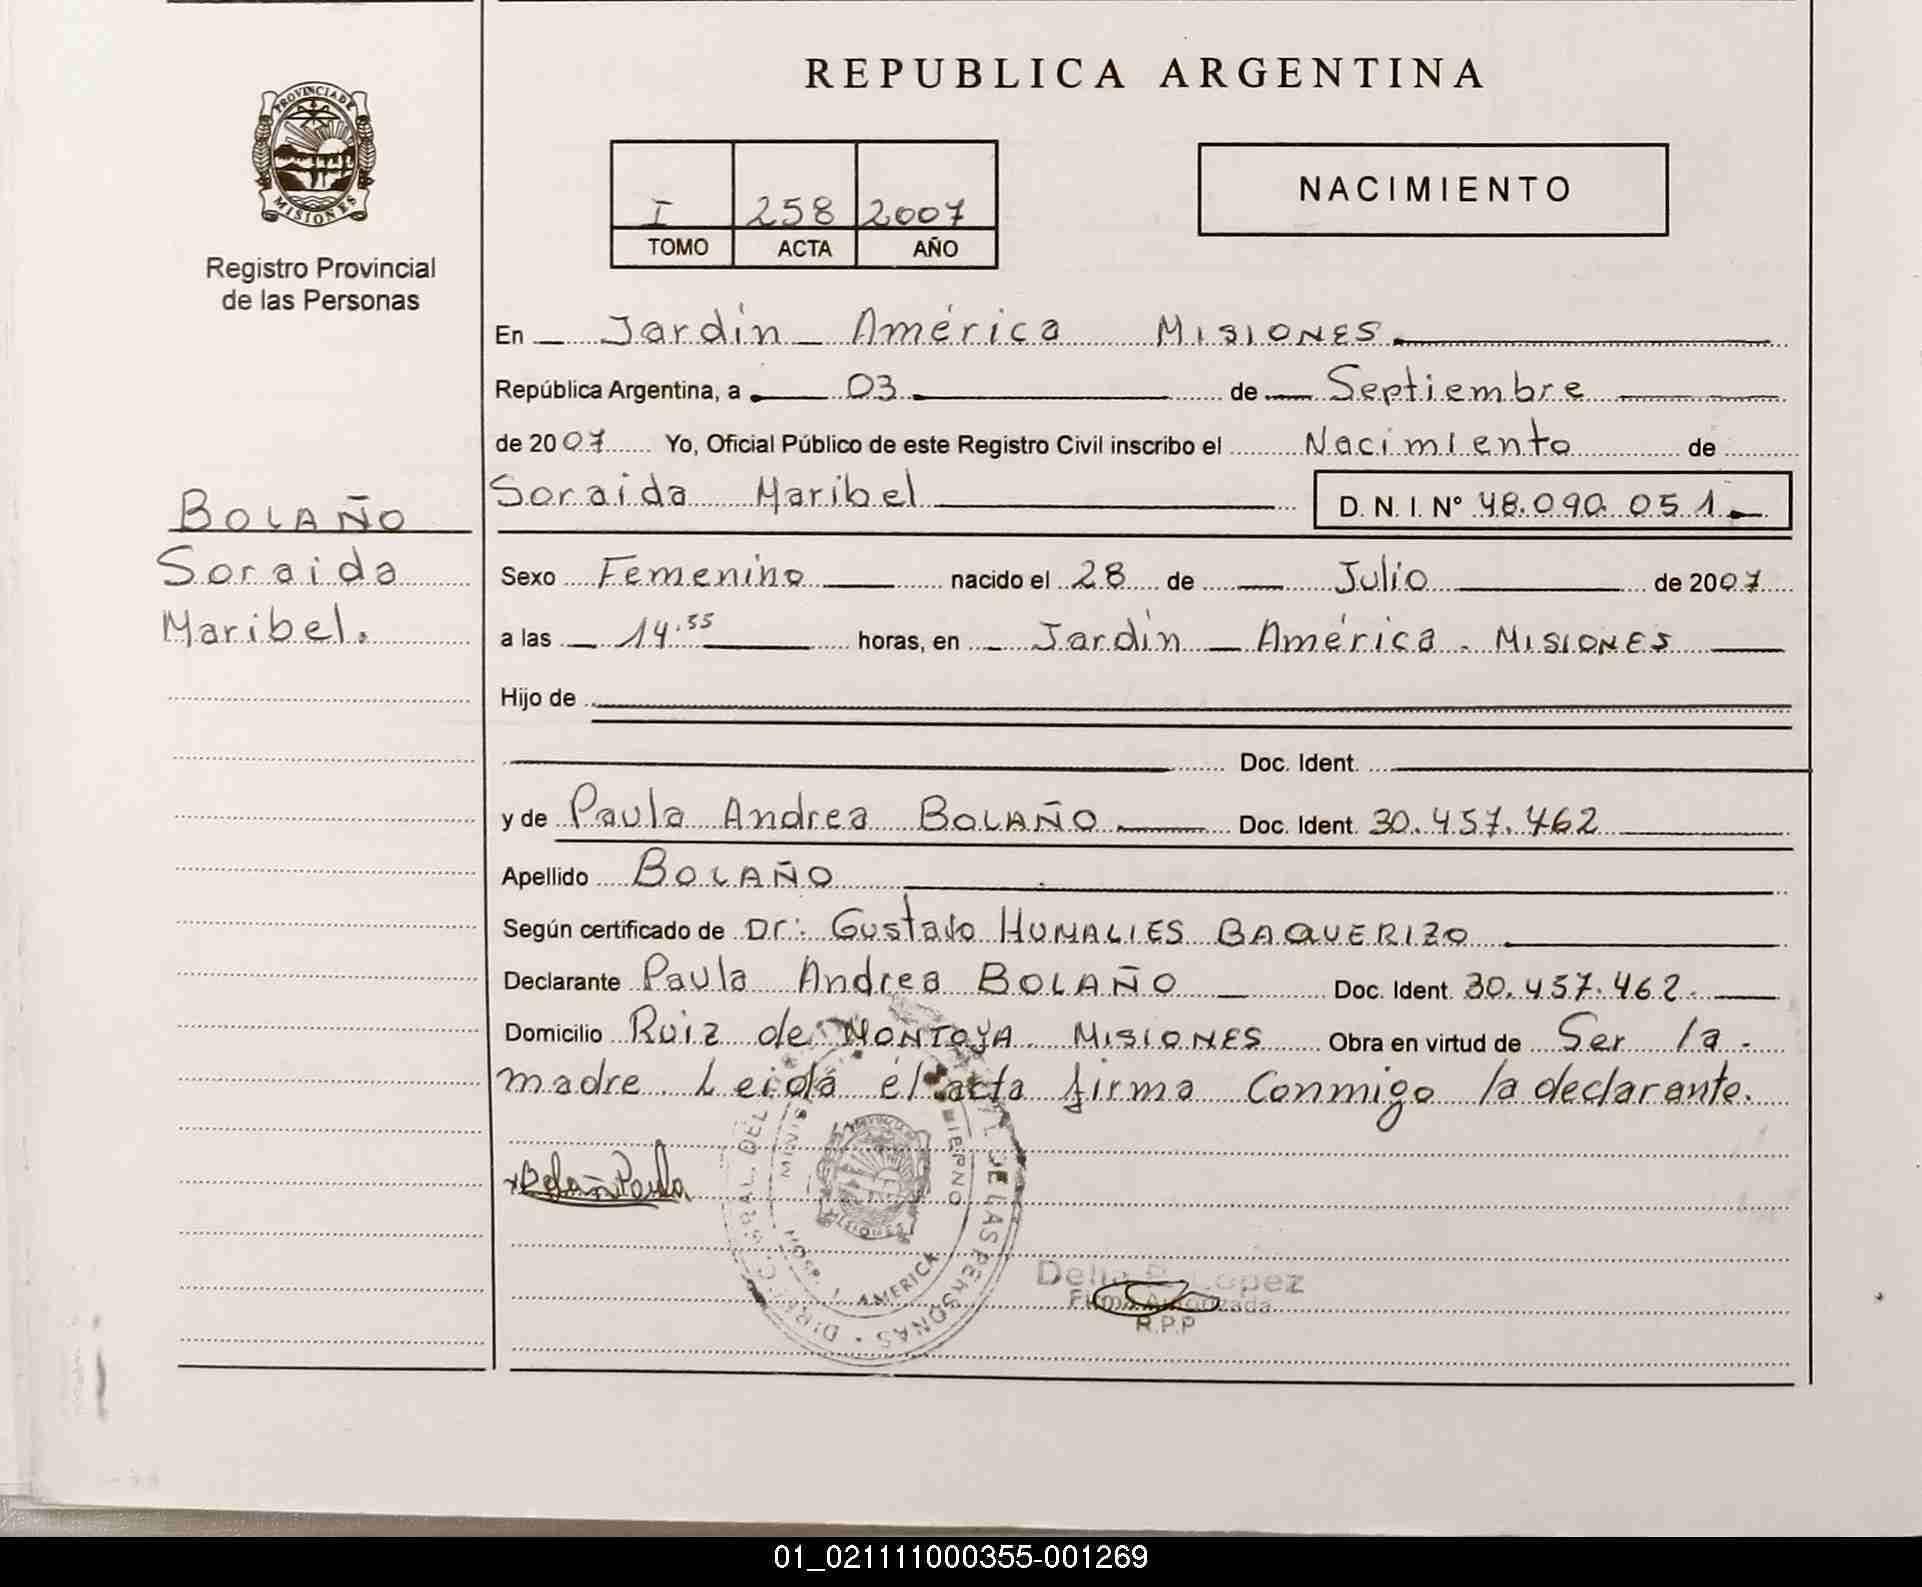 REPUBLICA ARGENTINA
PROVINCIA DE
MISIONES
Registro Provincial
de las Personas
I 258 2007
TOMO ACTA AÑO
NACIMIENTO
En Jardín América MISIONES
República Argentina, a 03 de Septiembre
de 2007 Yo, Oficial Público de este Registro Civil inscribo el Nacimiento de
Soraida Maribel D. N. I. N° 48.090.051
BOLAÑO
Soraida
Maribel.
Sexo Femenino nacido el 28 de Julio de 2007
a las 14.55 horas, en Jardín América. MISIONES
Hijo de
Doc. Ident.
y de Paula Andrea BOLAÑO Doc. Ident. 30.457.462
Apellido BOLAÑO
Según certificado de Dr: Gustavo HUMALIES BAQUERIZO
Declarante Paula Andrea BOLAÑO Doc. Ident. 30.457.462.
Domicilio Ruiz de MONTOYA. MISIONES Obra en virtud de Ser la
madre. Leida el acta firma Conmigo la declarante.
Bolañ Paula
DE LAS PERSONAS
AMERICA
MISIONES
Delia López
Firma Autorizada
R.P.P
01_021111000355-001269